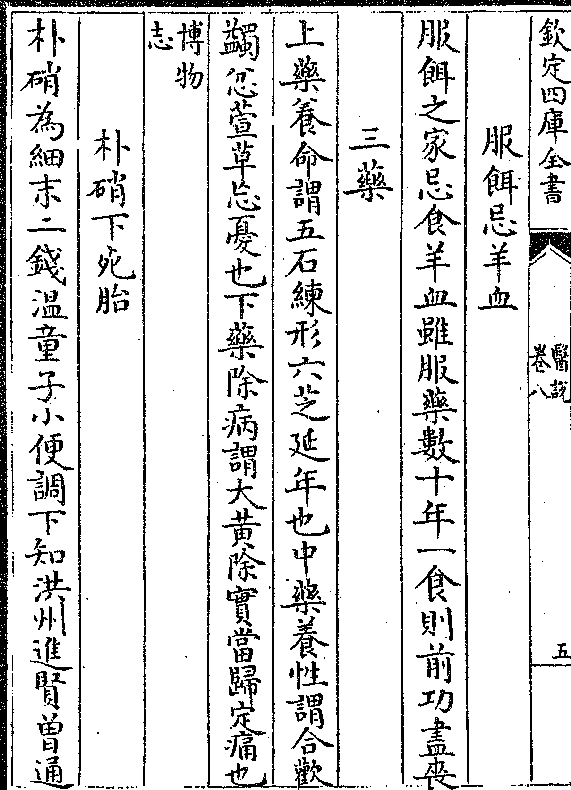 欽定四庫全書
醫說
卷八
五
服餌忌羊血
服餌之家忌食羊血雖服藥數十年一食則前功盡喪
三藥
上藥養命謂五石練形六芝延年也中藥養性謂合歡
蠲忿萱草忘憂也下藥除病謂大黃除實當歸定痛也
博物
志
朴硝下死胎
朴硝為細末二錢溫童子小便調下知洪州進賢曾通